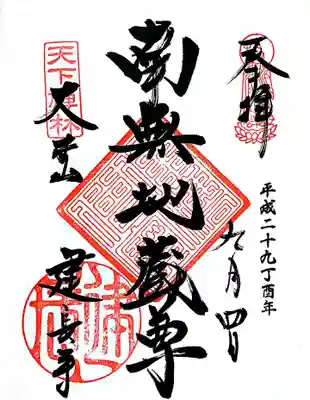 奉拝
平成二十九丁酉年
九月四日
南無地蔵尊
天下禅林
巨福山
建長寺